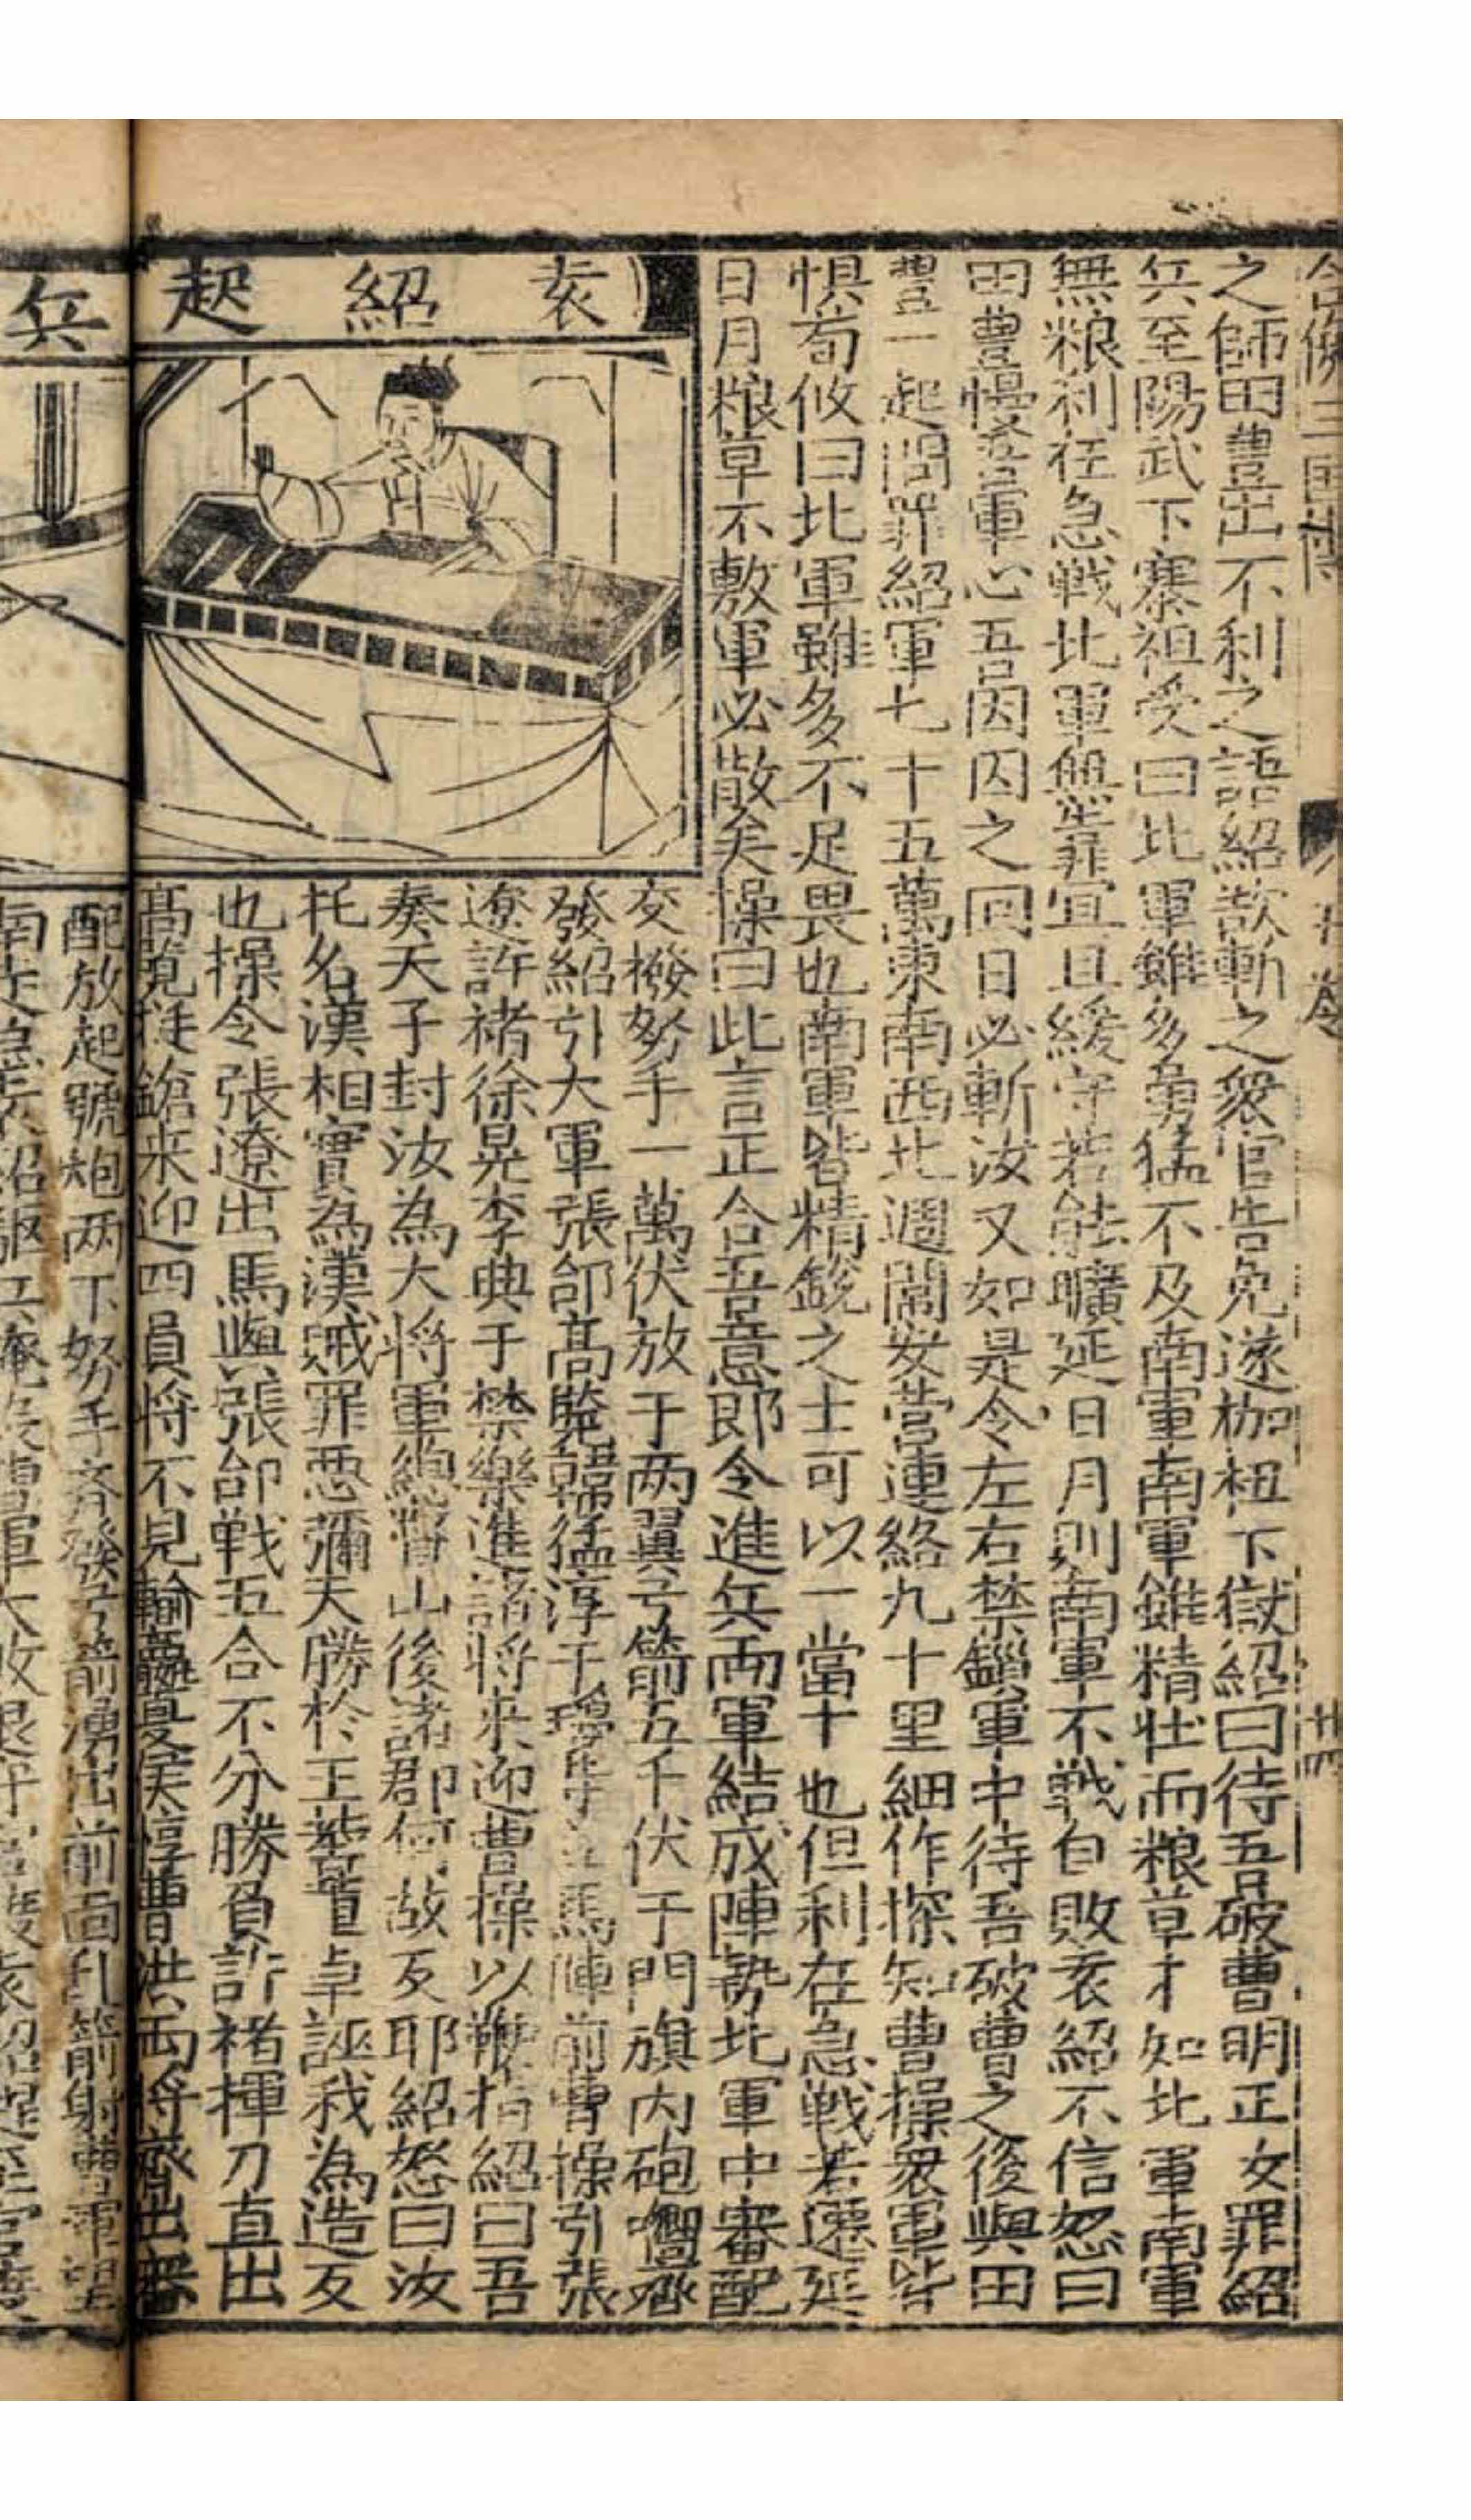 之師田豊出不利之語紹欲斬之衆官告免遂枷杻下獄紹曰待吾破曹明正女罪紹
兵至陽武下寨祖受曰北軍雖多勇猛不及南軍南軍雖精壮而粮草才知北軍南軍
無粮利在急戦北軍無靠宜且緩守若能曠延日月則南軍不戦自敗袁紹不信怒曰
田豊慢吾軍心吾因囚之回日必斬汝又如是令左右禁鎖軍中待吾破曹之後與田
豊一起問罪紹軍七十五萬東南西北週闊安營連絡九十里細作探知曹操衆軍皆
惧荀攸曰北軍雖多不足畏也南軍皆精鋭之士可以一當十也但利在急戦若遷延
日月粮草不敷軍必散矣操曰此言正合吾意即令進兵両軍結成陣勢北軍中審配
袁紹起兵
交撥弩手一萬伏放于两翼弓箭五千伏于門旗内砲嚮齊
發紹引大軍張郃高覧韓猛淳于瓊等立馬陣前曹操引張
遼許褚徐晃李典于禁樂進諸将来迎曹操以鞭指紹曰吾
奏天子封汝為大将軍緫督山後諸郡何故反耶紹怒曰汝
托名漢相實為漢賊罪惡彌天勝於王莾董卓誣我為造反
也操令張遼出馬與張郃戦五合不分勝負許褚揮刀直出
高覧挺鎗来迎四員将不見輸贏夏侯惇曹洪両将齊出審
配放起號炮两下弩手齊發弓箭湧出前面乱箭射曹軍望